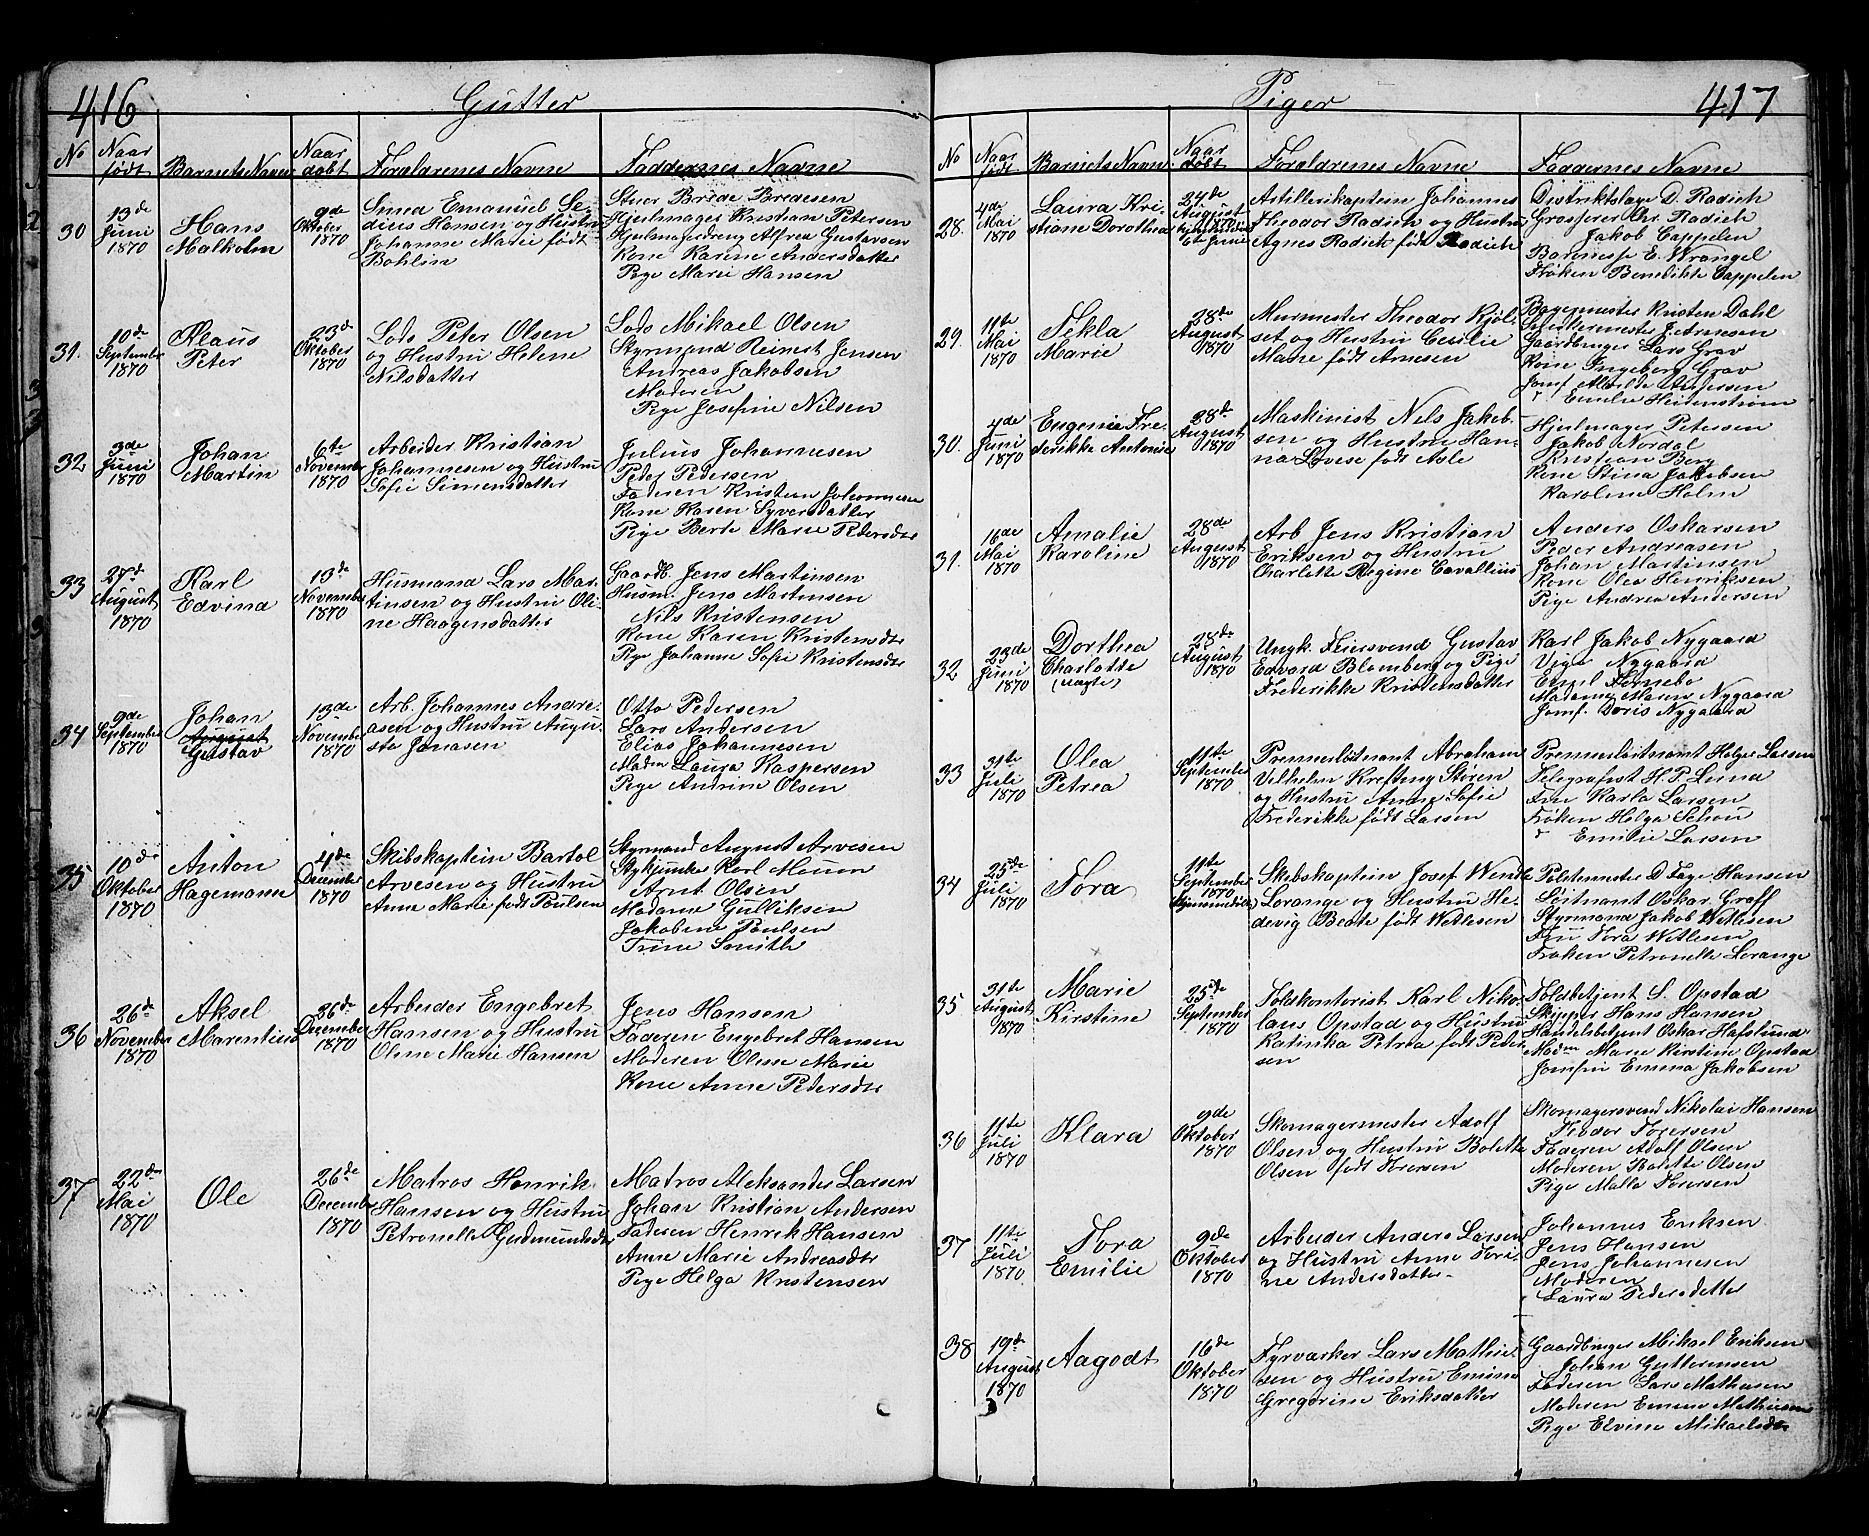 416
Gutter
No
Naar født
Barnets Navn
Naar døbt
Forældrenes Navne
Faddernes Navne
30
13de Juni 1870
Hans Malkolm
9de Oktober 1870
Smed Emanuel Se-
dius Hansen og Hustru
Johanne Marie født
Bohlin
Stuer Brede Bredesen
Hjulmager Kristian Petersen
Hjulmagerdreng Alfred Gustavsen
Kone Karine Andersdatter
Pige Marie Hansen
31.
10de September 1870
Klaus Peter
23de Oktober 1870
Lods Peter Olsen
og Hustru Helene
Nilsdatter
Lods Mikael Olsen
Styrmand Reinert Jensen
Andreas Jakobsen
Moderen
Pige Josefine Nilsen
32
3de Juni 1870
Johan Martin
6te November 1870
Arbeider Kristian
Johannesen og Hustru
Sofie Simensdatter
Julius Johannesen
Peder Pedersen
Faderen Kristian Johannesen
Kone Karen Syversdatter
Pige Berte Marie Pedersdtr
33
27de August 1870
Karl Edvind
13de November 1870
Husmand Lars Mar-
tinsen og Hustru Oli-
ne Haagensdatter
Gaardb. Jens Martinsen
Husm. Jens Martinsen
Nils Kristensen
Kone Karen Kristensdtr
Pige Johanne Sofie Kristensdtr
34
9de September 1870
Johan August Gustav
13de November 1870
Arb. Johannes Andre-
asen og Hustru Augu-
sta Jonasen
Otto Pedersen
Lars Andersen
Elias Johannesen
Madm Laura Kaspersen
Pige Andrine Olsen
35
10de Oktober 1870
Anton Hagemann
4de December 1870
Skibskaptein Bartol
Arvesen og Hustru
Anne Marie født Poulsen
Styrmand August Arvesen
Stykjunker Karl Moum
Arnt Olsen
Madame Gulliksen
Jakobine Poulsen
Trine Smith
36
26de November 1870
Aksel Marentius
26de December 1870
Arbeider Engebret
Hansen og Hustru
Oline Marie Hansen
Jens Hansen
Faderen Engebret Hansen
Moderen Oline Marie
Kone Anne Pedersdtr
37
22de Mai 1870
Ole
26de December 1870
Matros Henrik
Hansen og Hustru
Petronelle Gudmundsdtr
Matros Aleksander Larsen
Johan Kristian Andersen
Faderen Henrik Hansen
Anne Marie Andreasdtr
Pige Helga Kristensen
417
Piger
No
Naar født
Barnets Navn
Naar døbt
Forældrenes Navne
Faddernes Navne
28.
4de Mai 1870
Laura Kri-
stiane Dorothea
24de August 1870
Artillerikaptein Johannes
Theodor Radich og Hustru
Agnes Radich født Radich
Distriktslæge D. Radich
Grosserer Chr. Radich
Jakob Cappelen
Baronesse E. Wrangel
Frøken Benedikte Cappelen
29.
11te Mai 1870
Tekla Marie
28de August 1870
Murmester Theodor Kjøl-
set og Hustru Cecilie
Marie født Arnesen
Bagermester Kristen Dahl
J. Arnesen
Gaardbruger Lars Grav
Kone Ingeborg Grav
Jomf Matilde Andersen
" Emilie Heidenstrøm
30.
4de Juni 1870
Eugenie Fre-
derikke Antonie
28de August 1870
Maskinist Nils Jakob-
sen og Hustru Han-
na Lovise født Asle
Hjulmager Petersen
Jakob Nordal
Kristian Berg
Kone Stina Jakobsen
Karoline Holm
31.
16de Mai 1870
Amalie Karoline
28de August 1870
Arb Jens Kristian
Eriksen og Hustru
Charlotte Regine Cavallius
Anders Oskarsen
Peder Andreasen
Johan Martinsen
Kone Olea Henriksen
Pige Andrea Andersen
32
23de Juni 1870
Dorthea Charlotte
(uægte)
28de August 1870
Ungk. Feiersvend Gustav
Edvard Blomberg og Pige
Frederikke Kristensdatter
Karl Jakob Nygaard
Viga Nygaard
Emil Fernebo
Madame Maren Nygaard
Jomf. Doris Nygaard
33
31te Juli 1870
Olea Petrea
11te September 1870
Premierløitnant Abraham
Vilhelm Krefting Støren
og Hustru Anne Sofie
Frederikke født Larsen
Premierløitnant Holger Larsen
Telegrafist H. P. Lund
Frue Karla Larsen
Frøken Helga Schou
" Emilie Larsen
34
25de Juli 1870
Tora
11te September 1870
Hjemmedøbt
Skibskaptein Josef Wendt
Lorange og Hustru He-
devig Beate født Wetlesen
D. Faye Hansen
Løitnant Oskar Graff
Styrmand Jakob Wetlesen
Fru Tora Wetlesen
Frøken Petronelle Lorange
35
31te August 1870
Marie Kirstine
25de September 1870
Toldkontorist Karl Niko-
laus Opstad og Hustru
Katinka Petrea født Peder-
sen
Toldbetjent S. Opstad
Skipper Hans Hansen
Handelsbetjent Oskar Hafslund
Madm Marie Kirstine Opstad
Jomfru Emma Jakobsen
36
11te Juli 1870
Klara
9de Oktober 1870
Skomagermester Adolf
Olsen og Hustru Bolette
Olsen født Toresen
Skomagersvend Nikolai Hansen
Teodor Toresen
Faderen Adolf Olsen
Moderen Bolette Olsen
Pige Malla Toresen
37
11te Juli 1870
Tora Emilie
9de Oktober 1870
Arbeider Anders Larsen
og Hustru Anne Tori-
ne Andersdatter
Johannes Eriksen
Jens Hansen
Jens Johannesen
Moderen
Laura Pedersdatter
38
19de August 1870
Aagodt
16de Oktober 1870
Fyrværker Lars Mathie-
sen og Hustru Emma
Gregorine Eriksdatter
Gaardbruger Mikael Eriksen
Johan Guttormsen
Faderen Lars Mathiesen
Moderen Emma Mathiesen
Pige Elvine Mikaelsdtr